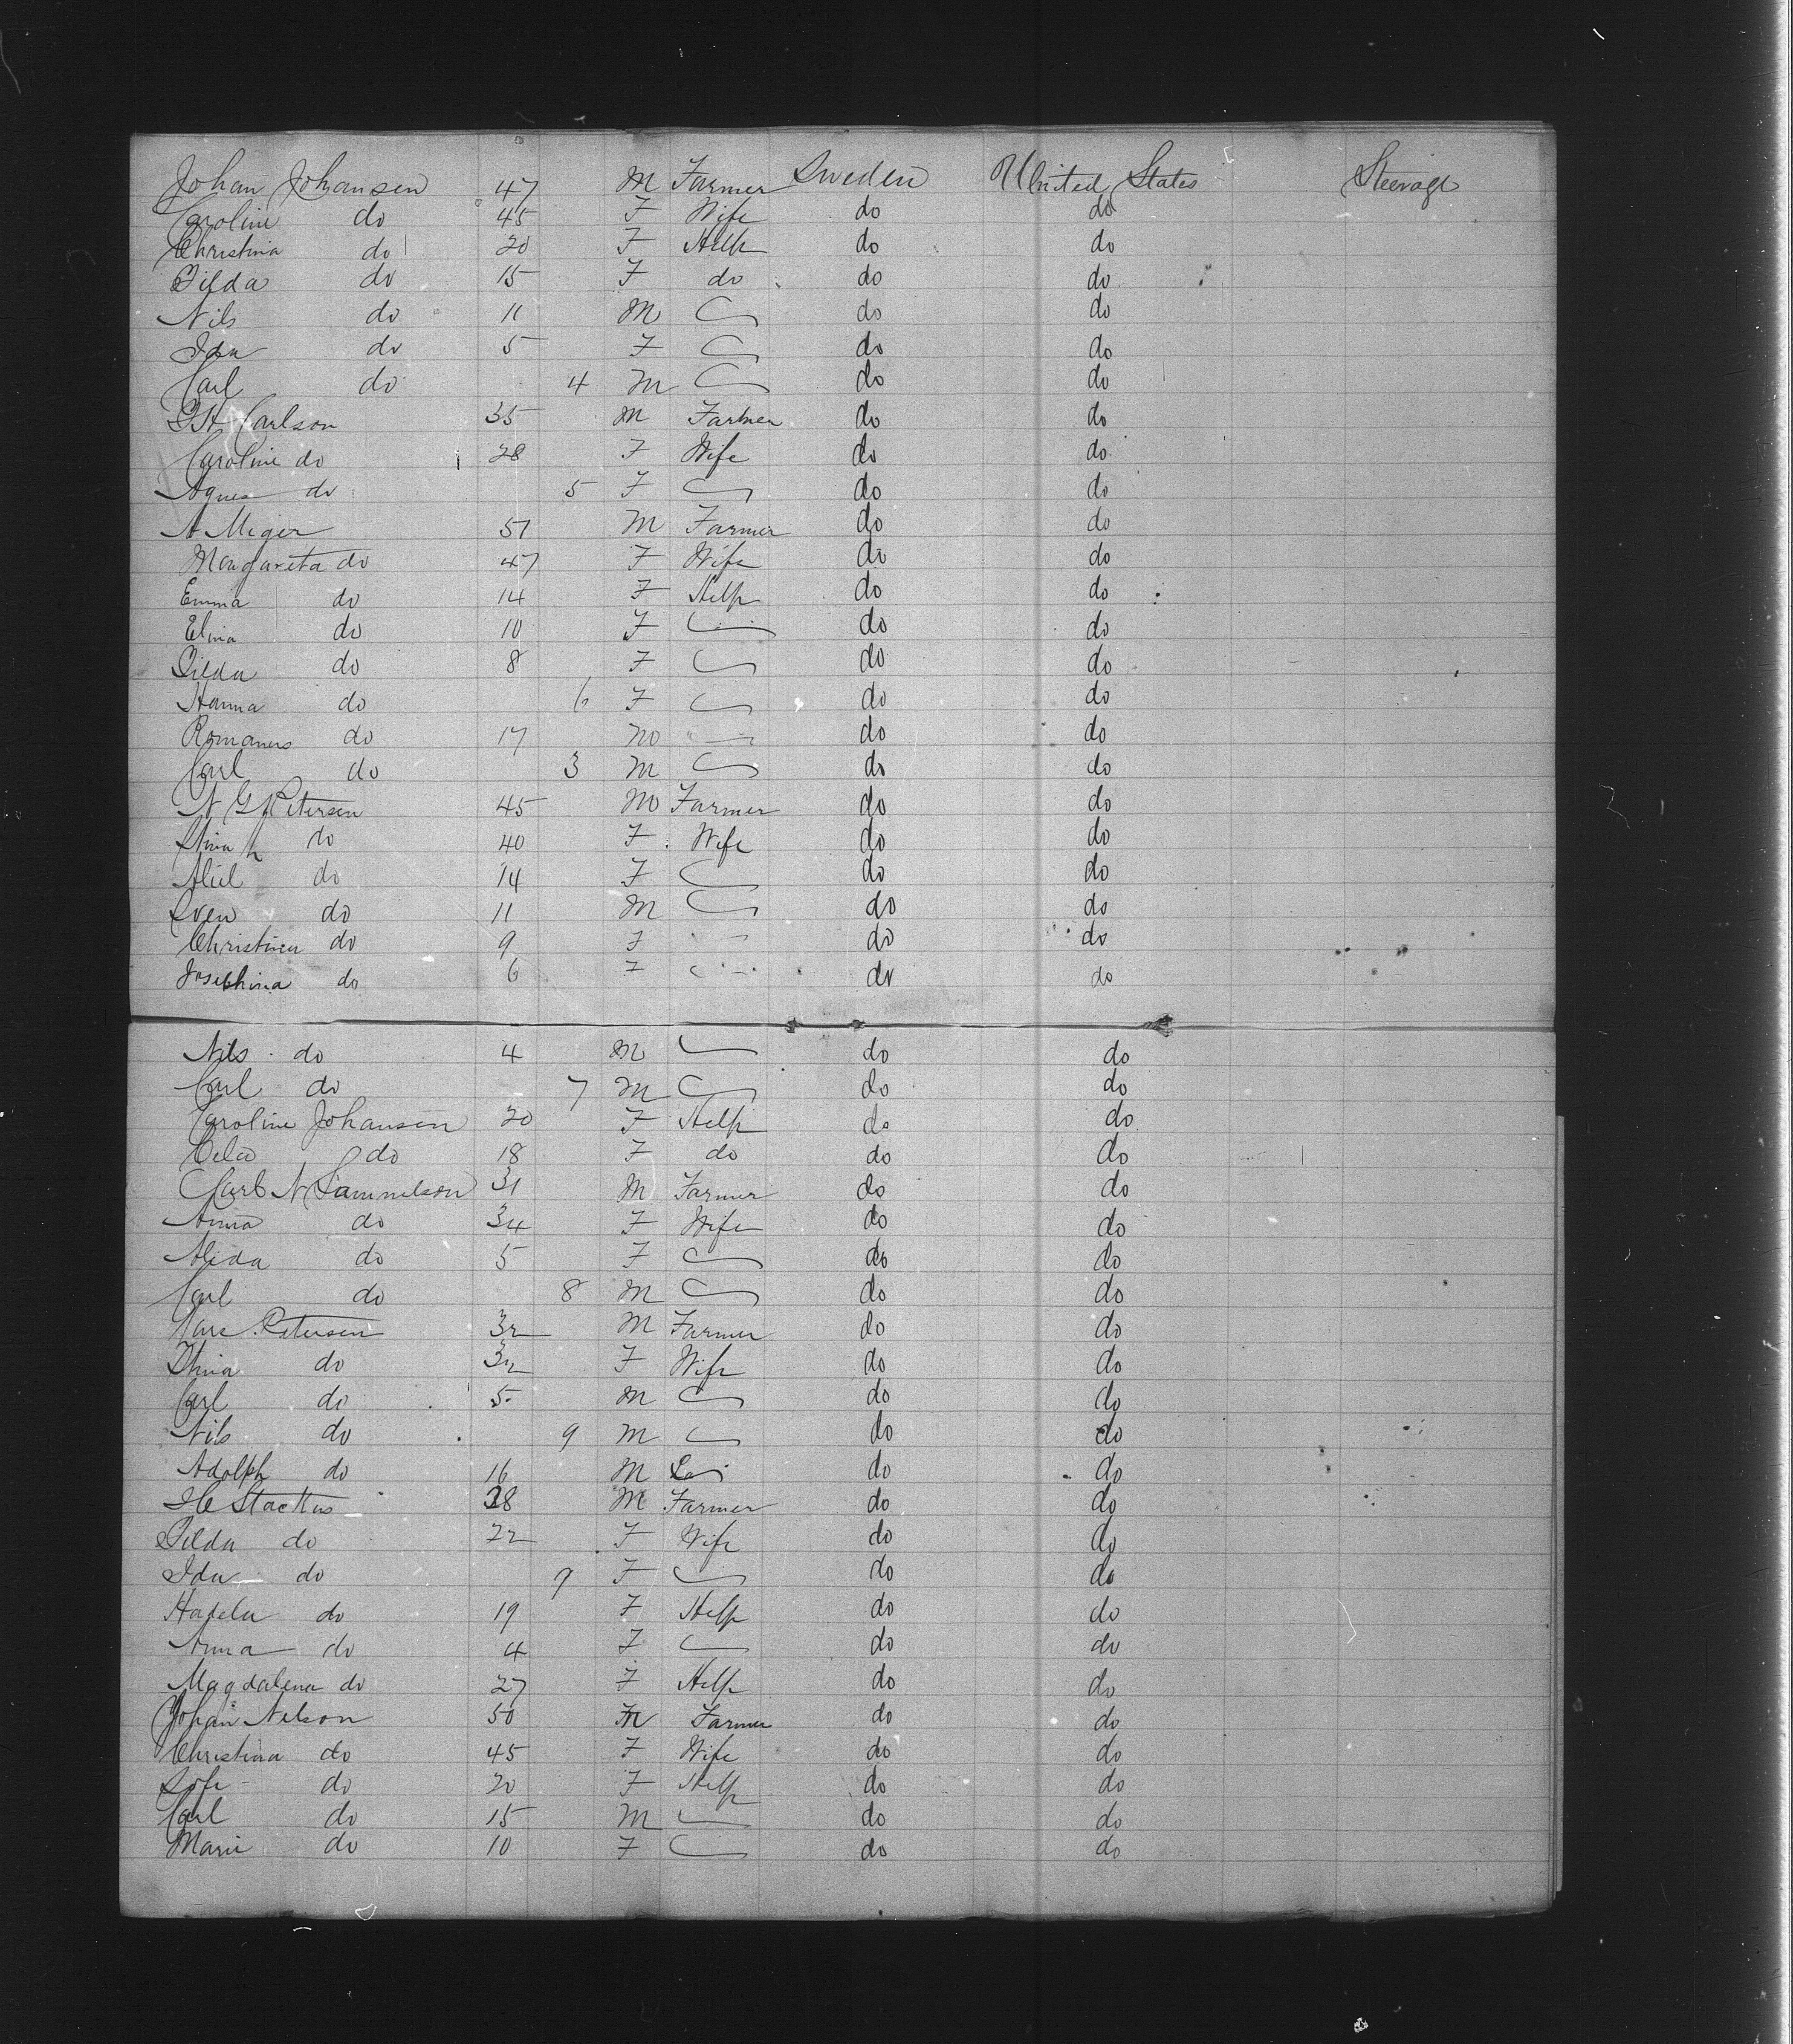 Johan Johansen 47 M Farmer Sweden United States Steerage
Caroline do 45 F Wife do do
Christina do 20 F Help do do
Gilda do 15 F do do do
Nils do 11 M do do
Ida do 5 F do do
Carl do 4 M do do
G A Carlson 35 M Farmer do do
Caroline do 28 F Wife do do
Agnes do 5 F do do
A Meger 51 M Farmer do do
Margareta do 47 F Wife do do
Emma do 14 F Help do do
Elina do 10 F do do
Gilda do 8 F do do
Hanna do 6 F do do
do 17 M do do
Carl do 3 M do do
N G Petersen 45 M Farmer do do
Stina do 40 F Wife do do
do 14 F do do
Sven do 11 M do do
Christina do 9 F do do
Josephina do 6 F do do
Nils do 4 M do do
Carl do 7 M do do
Caroline Johansen 20 F Help do do
do 18 F do do do
Carl N Samuelson 31 M Farmer do do
Anna do 34 F Wife do do
Alida do 5 F do do
Carl do 8 M do do
Petersen 32 M Farmer do do
do 32 F Wife do do
Carl do 5 M do do
Nils do 9 M do do
Adolph do 16 M do do
Stackus 38 M Farmer do do
Gilda do 22 F Wife do do
Ida do 9 F do do
do 19 F Help do do
Anna do 4 F do do
Magdalena do 27 F Help do do
Johan Nelson 50 M Farmer do do
Christina do 45 F Wife do do
Sofe do 20 F Help do do
Carl do 15 M do do
Marie do 10 F do do